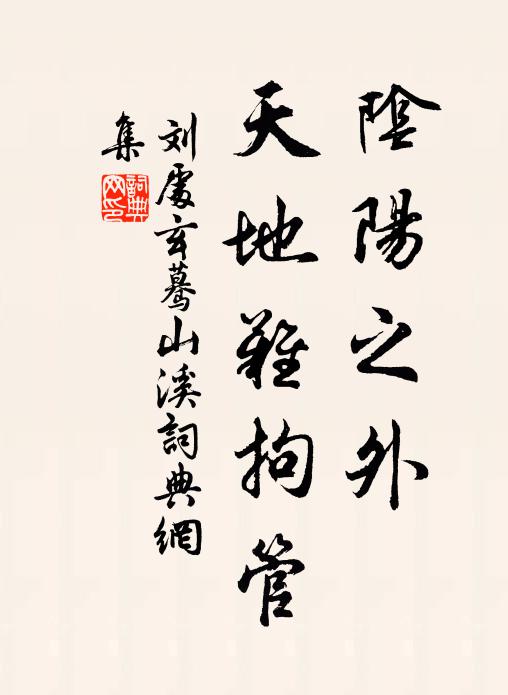 陰陽之外
天地難拘管
刘處玄驀山溪詞典網
集
詞典網印